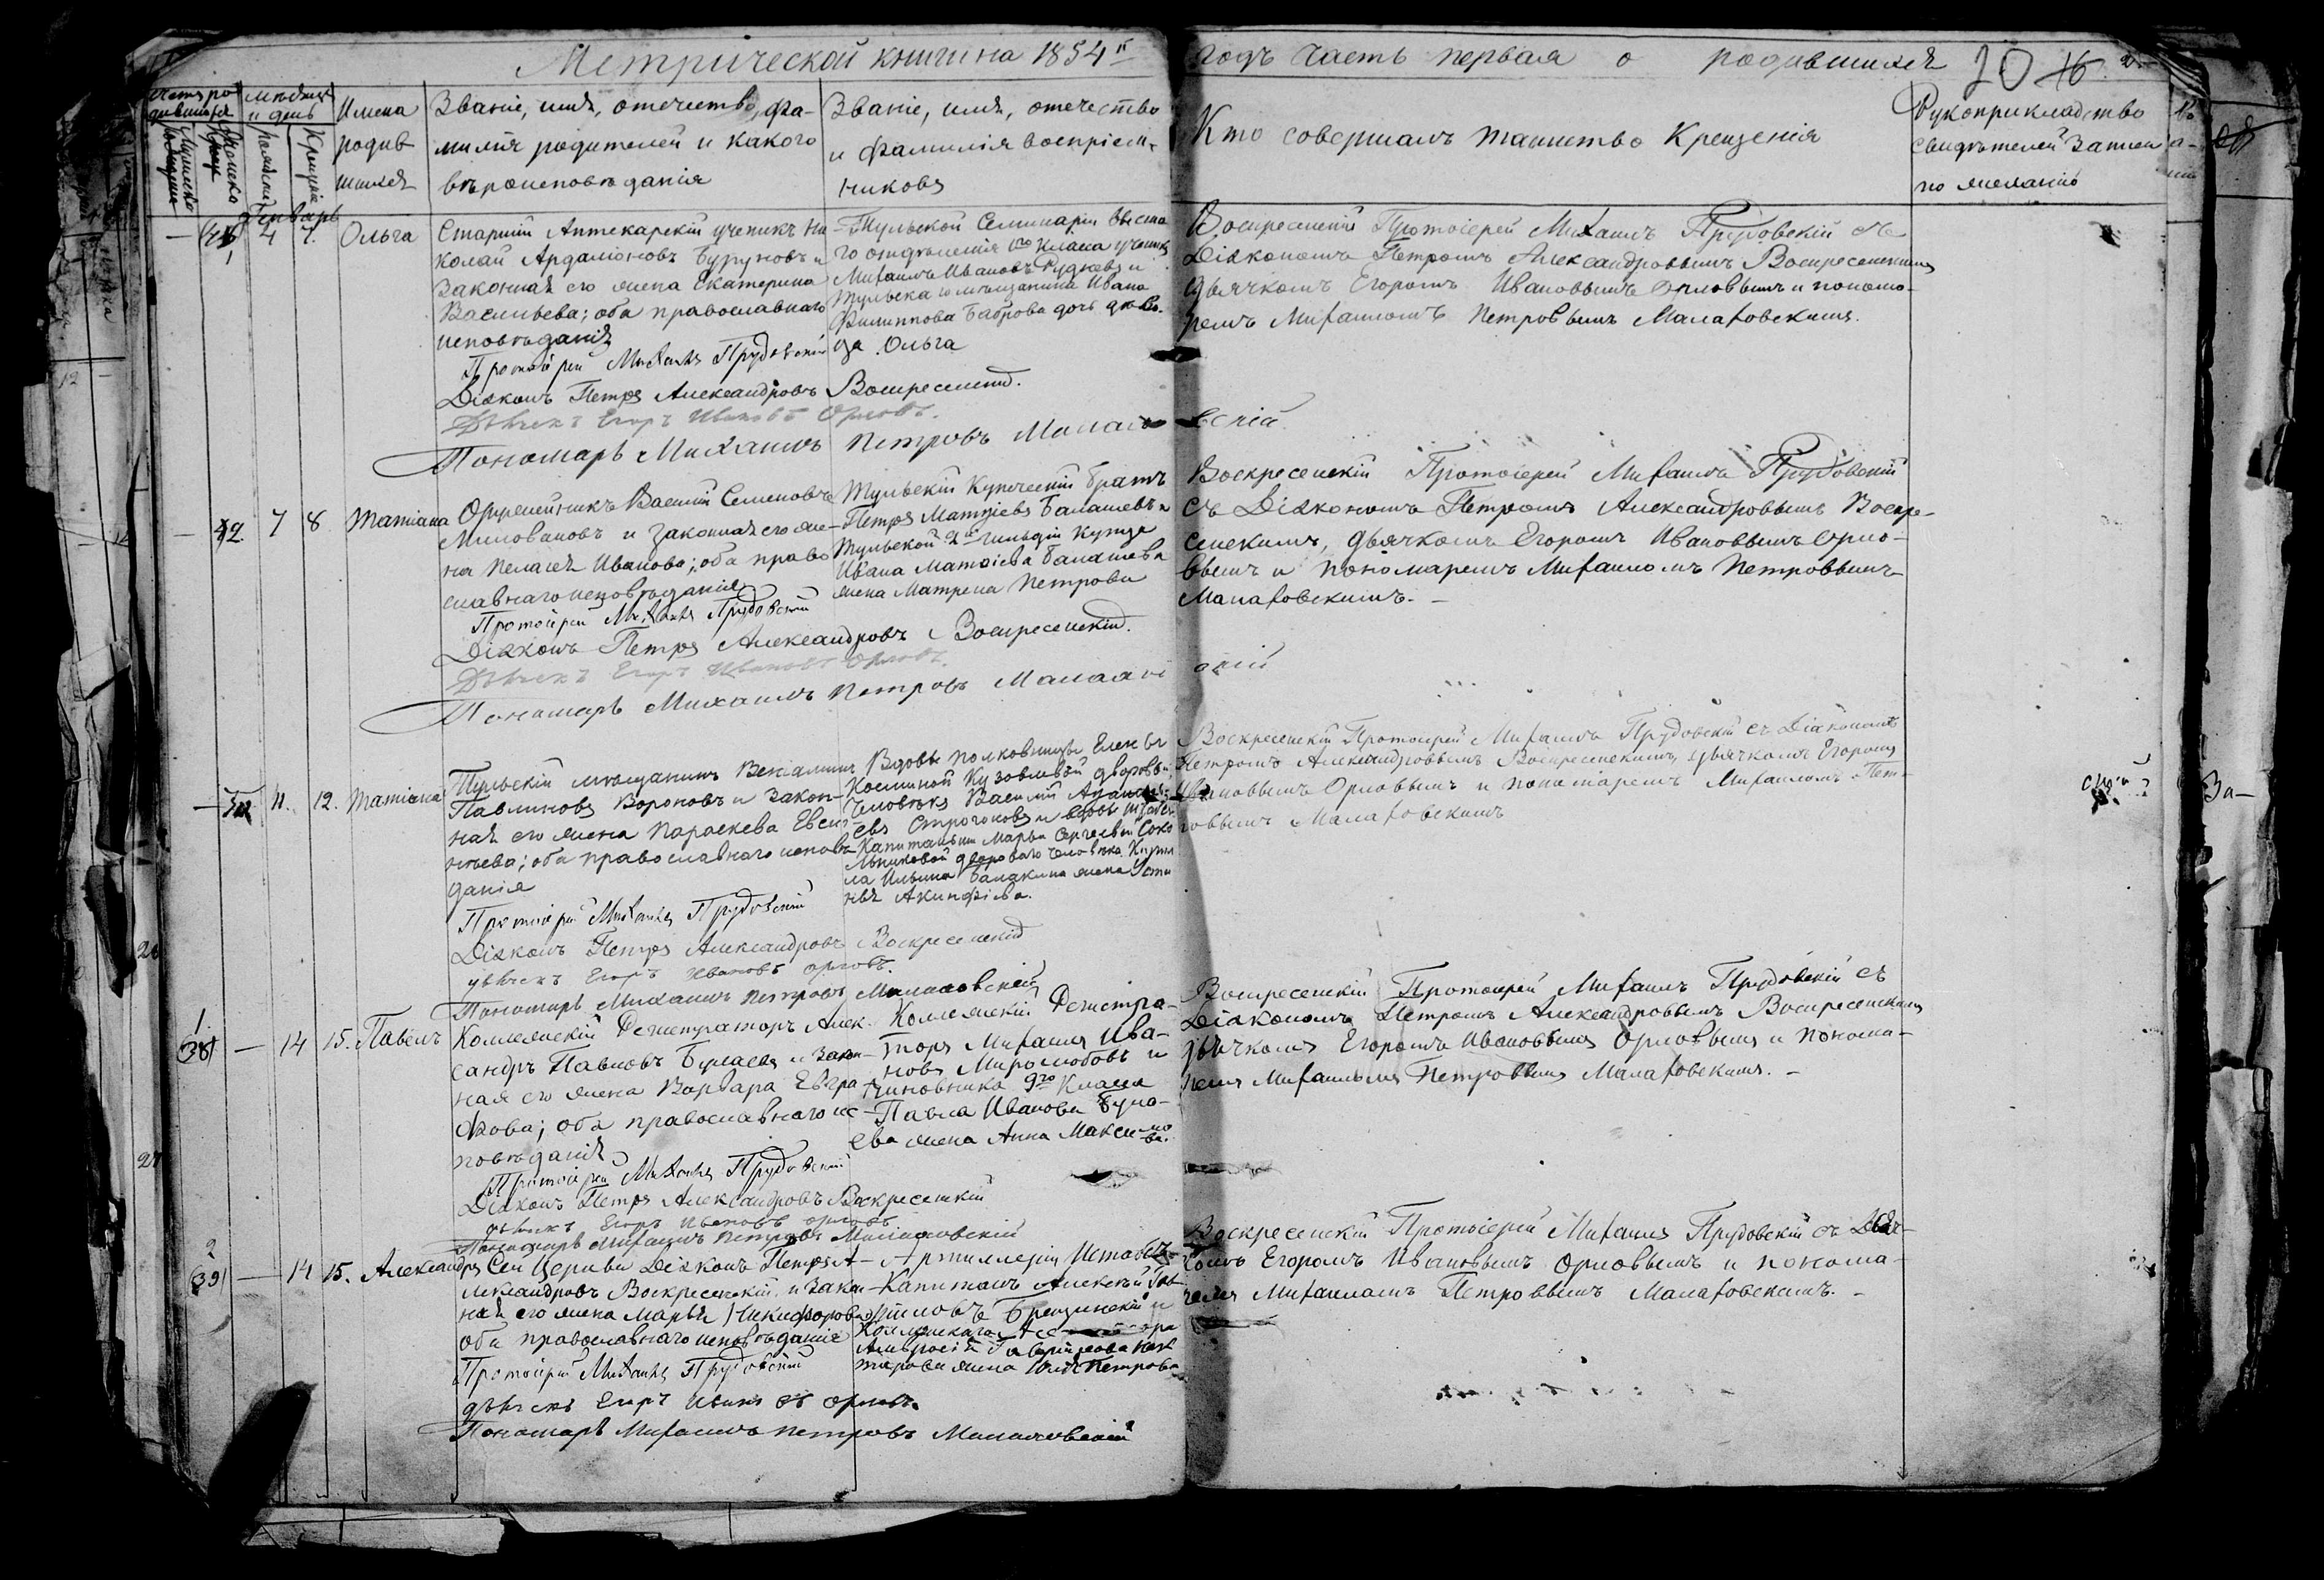 Метрической книги на 1854й годъ часть первая о родившихся 20
Счетъ родившихся
Мѣсяцъ и день
Имена родившихся
Званіе, имя, отечество, фамилія родителей и какого вѣроисповѣданія
Званіе, имя, отечество и фамилія воспріемниковъ
Кто совершалъ таинство Крещенія
Рукоприкладство свидѣтелей записи по желанію
Мужеска Женска
рожденія Крещенія
Январь
4 7. Ольга
Старшій Аптекарскій ученикъ Ни
колай Ардаліоновъ Буруновъ и
законная его жена Екатерина
Васильева; оба православнаго
исповѣданія
Тульской Семинаріи высша
го отдѣленія Класа ученикъ
Михаилъ Ивановъ Рудневъ и
Тульскаго мѣщанина Ивана
Филиппова Боброва дочь дѣви
ца Ольга
Воскресенскій Протоіерей Михаилъ Прудовскій съ
Діакономъ Петромъ Александровымъ Воскресенскимъ
дьячкомъ Егоромъ Ивановымъ Орловымъ и понома-
ремъ Михаиломъ Петровымъ Малаховскимъ.
Протоіерей Михаилъ Прудовскій
Діаконъ Петръ Александровъ Воскресенскій.
Дьячекъ Егоръ Ивановъ Орловъ.
Пономарь Михаилъ Петровъ Малаховскій
42. 7 8 Татіана
Оружейникъ Василій Семеновъ
Миловановъ и законная его же-
на Пелагея Иванова; оба право
славнаго исповѣданія
Тульскій Купеческій братъ
Петръ Матѳіевъ Балашевъ и
Тульской 2й гильдіи Купца
Ивана Матѳіева Балашева
жена Матрена Петрова
Воскресенскій Протоіерей Михаилъ Прудовскій
съ Діакономъ Петромъ Александровымъ Воскре-
сенскимъ, дьячкомъ Егоромъ Ивановымъ Орло-
вымъ и пономаремъ Михаиломъ Петровымъ
Малаховскимъ.-
Протоіерей Михаилъ Прудовскій
Діаконъ Петръ Александровъ Воскресенскій.
Дьячекъ Егоръ Ивановъ Орловъ.
Пономарь Михаилъ Петровъ Малаховскій
11. 12. Татіана
Тульскій мѣщанинъ Веніаминъ
Павлиновъ Вороновъ и закон-
ная его жена Параскева Евси-
нѣева; оба православнаго исповѣ
данія
Вдовы полковницы Елены
Косминой Кузовлевой дворовый
Человѣкъ Василій
евъ Строгоновъ и вдовы штабсъ
Капитанши Марьи Сергѣевны Соко
льниковой двороваго человѣка
ла Ильина Балакина жена Усти
нья Акинфіева.
Воскресенскій Протоіерей Михаилъ Прудовскій съ Діакономъ
Петромъ Александровымъ Воскресенскимъ, дьячкомъ Егоромъ
Ивановымъ Орловымъ и пономаремъ Михаиломъ Пет-
ровымъ Малаховскимъ
За-
Протоіерей Михаилъ Прудовскій
Діаконъ Петръ Александровъ Воскресенскій
дьячекъ Егоръ Ивановъ Орловъ.
Пономарь Михаилъ Петровъ Малаховскій
1. 38 — 14 15. Павелъ
Коллежскій Регистраторъ Алек-
сандръ Павловъ и закон-
ная его жена Варвара Евгра
фова; оба православнаго ис
повѣданія
Коллежскій Регистра-
торъ Михаилъ Ива-
новъ Миролюбовъ и
Чиновника 9го Класса
Павла Иванова
ева жена Анна Максимова.
Воскресенскій Протоіерей Михаилъ Прудовскій съ
Діакономъ Петромъ Александровымъ Воскресенскимъ
дьячкомъ Егоромъ Ивановымъ Орловымъ и понома-
ремъ Михаиломъ Петровымъ Малаховскимъ.-
Протоіерей Михаилъ Прудовскій
Діаконъ Петръ Александровъ Воскресенскій
дьячекъ Егоръ Ивановъ Орловъ
Пономарь Михаилъ Петровъ Малаховскій
2 39 — 14 15. Александръ
Сей Церкви Діаконъ Петръ А-
лександровъ Воскресенскій и закон
ная его жена Марья Никифорова
оба православнаго исповѣданія
Артиллеріи Штабсъ-
Капитанъ Алексѣй Гав-
риловъ и
Коллежскаго
Амвросія Гаврилова
жена Петрова
Воскресенскій Протоіерей Михаилъ Прудовскій съ Дьяч-
комъ Егоромъ Ивановымъ Орловымъ и понома-
ремъ Михаиломъ Петровымъ Малаховскимъ.-
Протоіерей Михаилъ Прудовскій
дьячекъ Егоръ Ивановъ Орловъ.
Пономарь Михаилъ Петровъ Малаховскій